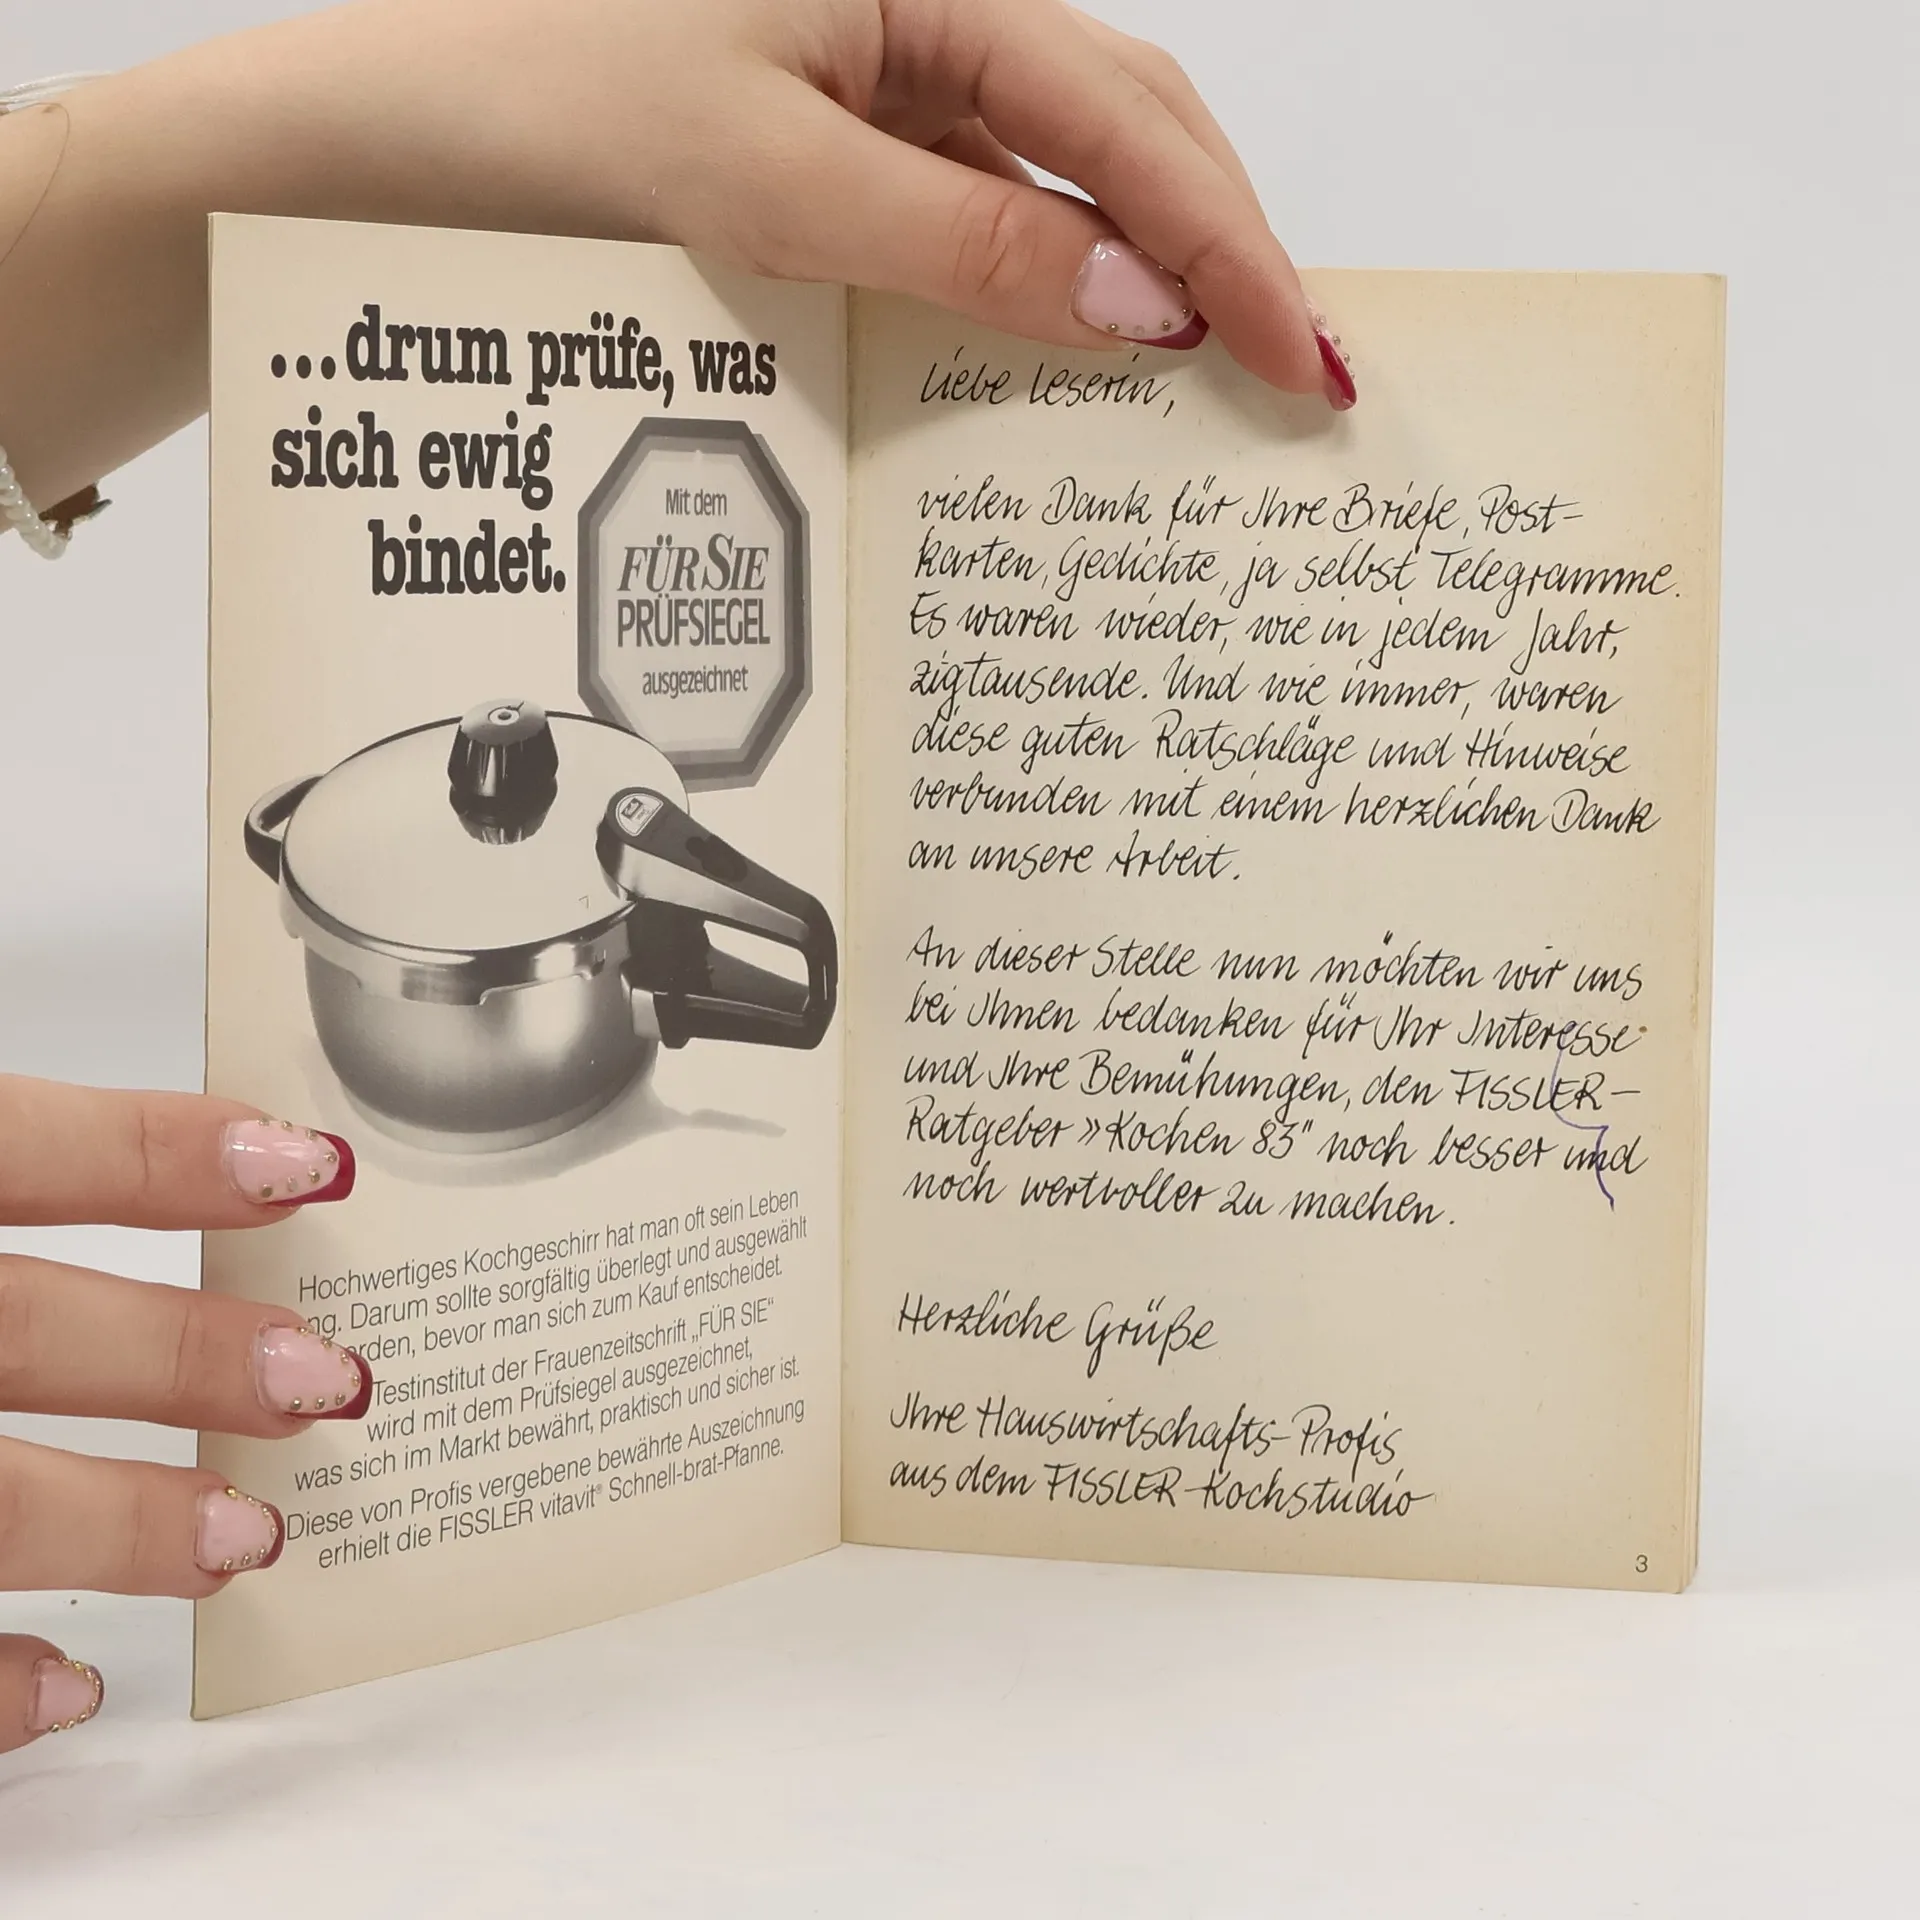 ...drum prüfe, was
sich ewig
bindet.
Mit dem
FÜR SIE
PRÜFSIEGEL
ausgezeichnet
Hochwertiges Kochgeschirr hat man oft sein Leben
ng. Darum sollte sorgfältig überlegt und ausgewählt
rden, bevor man sich zum Kauf entscheidet.
Testinstitut der Frauenzeitschrift „FÜR SIE“
wird mit dem Prüfsiegel ausgezeichnet,
was sich im Markt bewährt, praktisch und sicher ist.
Diese von Profis vergebene bewährte Auszeichnung
erhielt die FISSLER vitavit® Schnell-brat-Pfanne.
Liebe Leserin,
vielen Dank für Ihre Briefe, Post-
karten, Gedichte, ja selbst Telegramme.
Es waren wieder, wie in jedem Jahr,
zigtausende. Und wie immer, waren
diese guten Ratschläge und Hinweise
verbunden mit einem herzlichen Dank
an unsere Arbeit.
An dieser Stelle nun möchten wir uns
bei Ihnen bedanken für Ihr Interesse
und Ihre Bemühungen, den FISSLER-
Ratgeber »Kochen 83" noch besser und
noch wertvoller zu machen.
Herzliche Grüße
Ihre Hauswirtschafts-Profis
aus dem FISSLER-Kochstudio
3